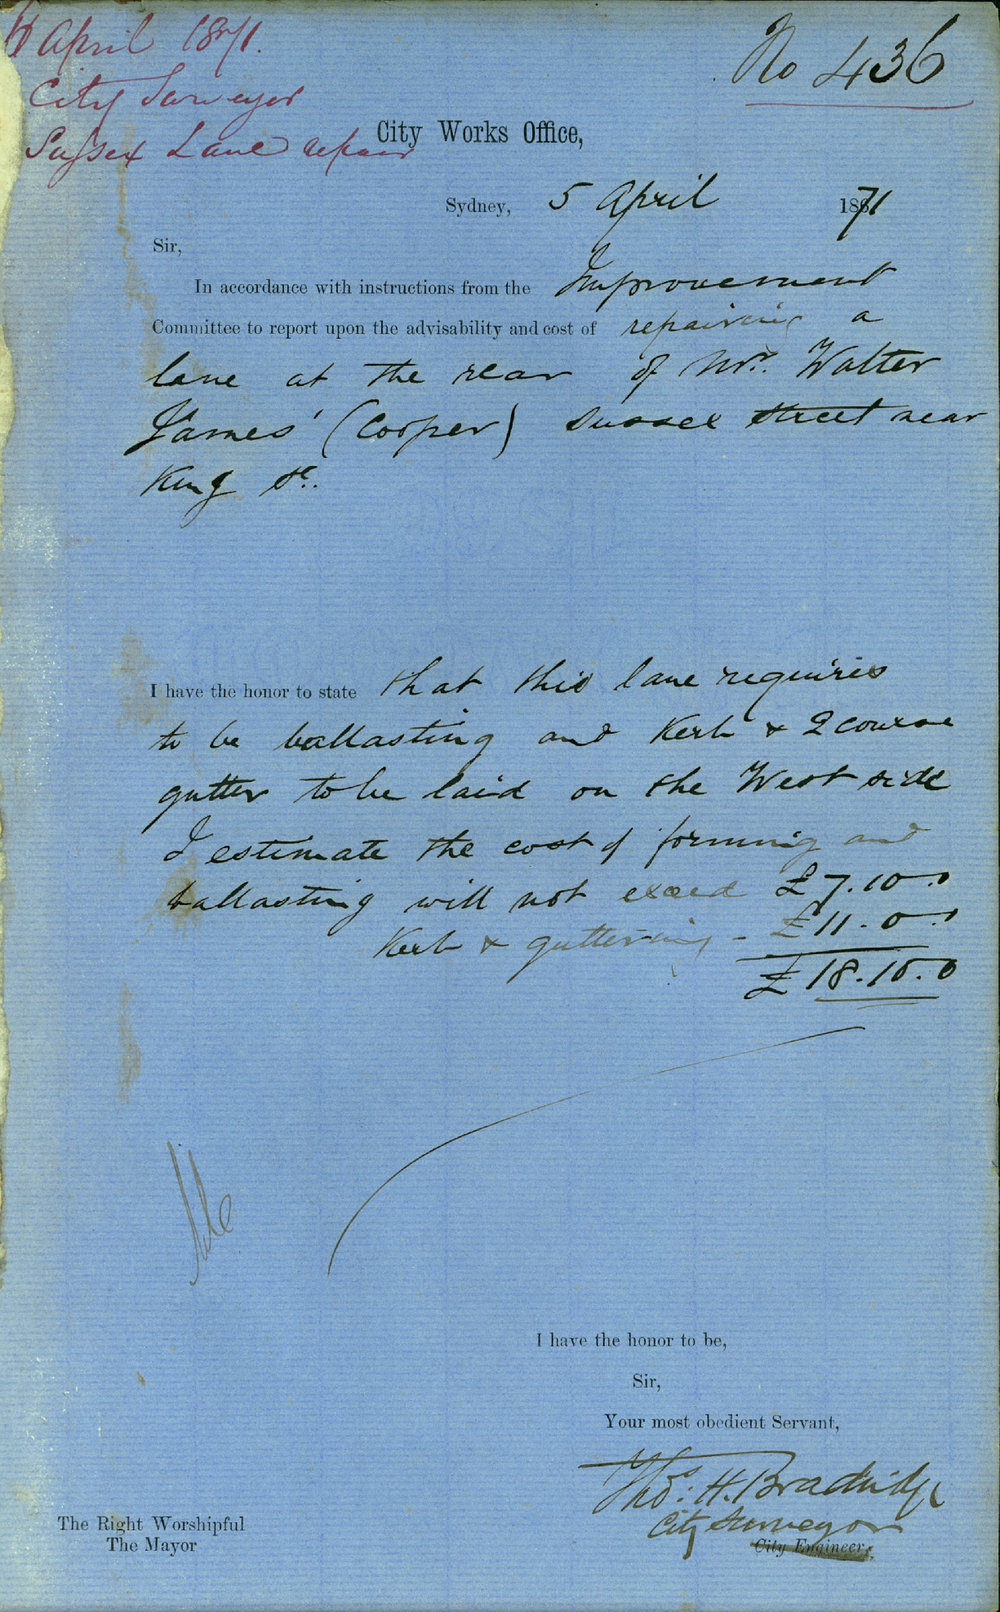 6 April 1871.
City Surveyor
Sussex Lane repair
No 436
City Works Office,
Sydney, 5 April 1871
Sir,
In accordance with instructions from the Improvement
Committee to report upon the advisability and cost of repairing a
lane at the rear of Mr. Walter
James' (Cooper) Sussex Street near
King St.
I have the honor to state that this lane requires
to be ballasting and Kerb & 2 course
gutter to be laid on the West side
I estimate the cost of forming and
ballasting will not exceed £7.10.0
Kerb & guttering - £11.0.0
£18.10.0
I have the honor to be,
Sir,
Your most obedient Servant,
Thos. H. Bradridge
City Surveyor
City Engineer.
The Right Worshipful
The Mayor